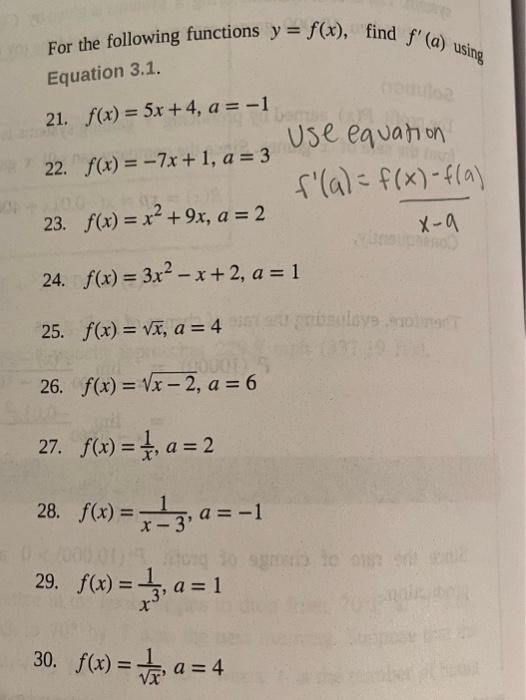 For the following functions y = f(x), find f′(a) using
Equation 3.1.
21. f(x) = 5x + 4, a = −1
22. f(x) = −7x + 1, a = 3
Use equation
f'(a) = f(x)-f(a)
x-a
23. f(x) = x² + 9x, a = 2
24. f(x) = 3x² − x + 2, a = 1
25. f(x) = √x, a = 4
26. f(x) = √(x − 2), a = 6
27. f(x) = 1/x, a = 2
28. f(x) = 1/(x − 3), a = −1
29. f(x) = 1/x³, a = 1
30. f(x) = 1/√x, a = 4